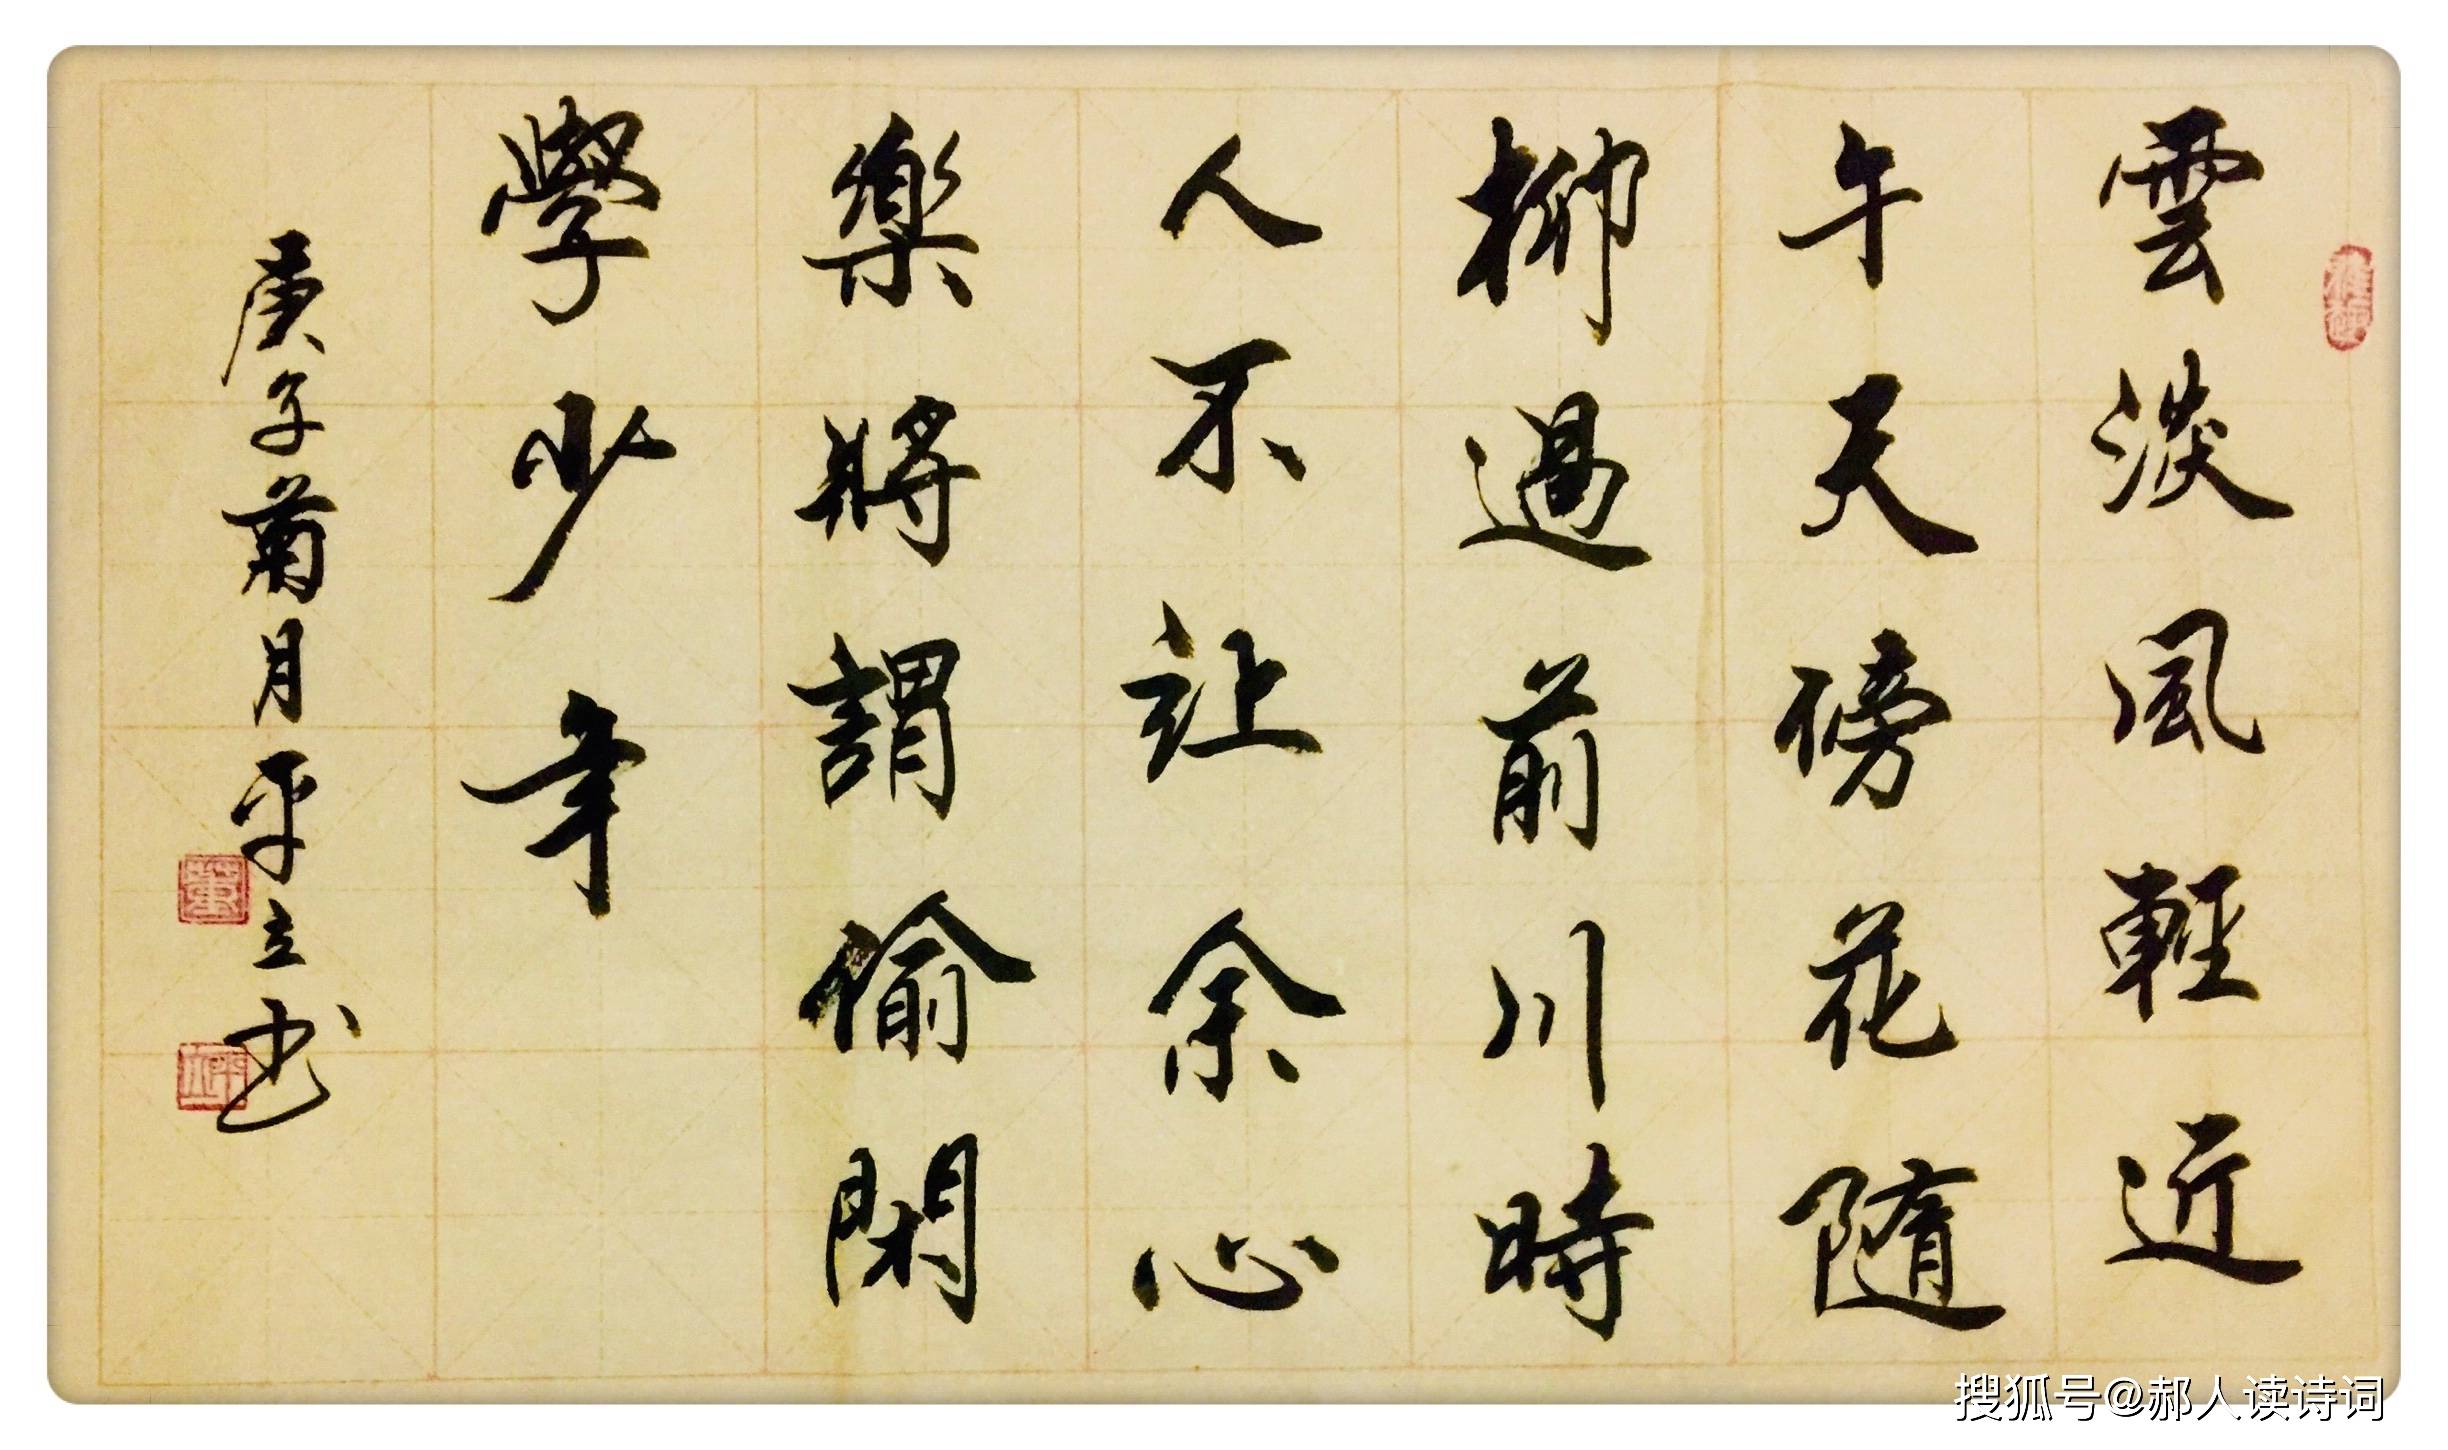 雲淡風輕近
午天傍花隨
柳過前川時
人不让余心
樂將謂偷閑
學少年
庚子菊月平立书
董
平立
搜狐号@郝人读诗词